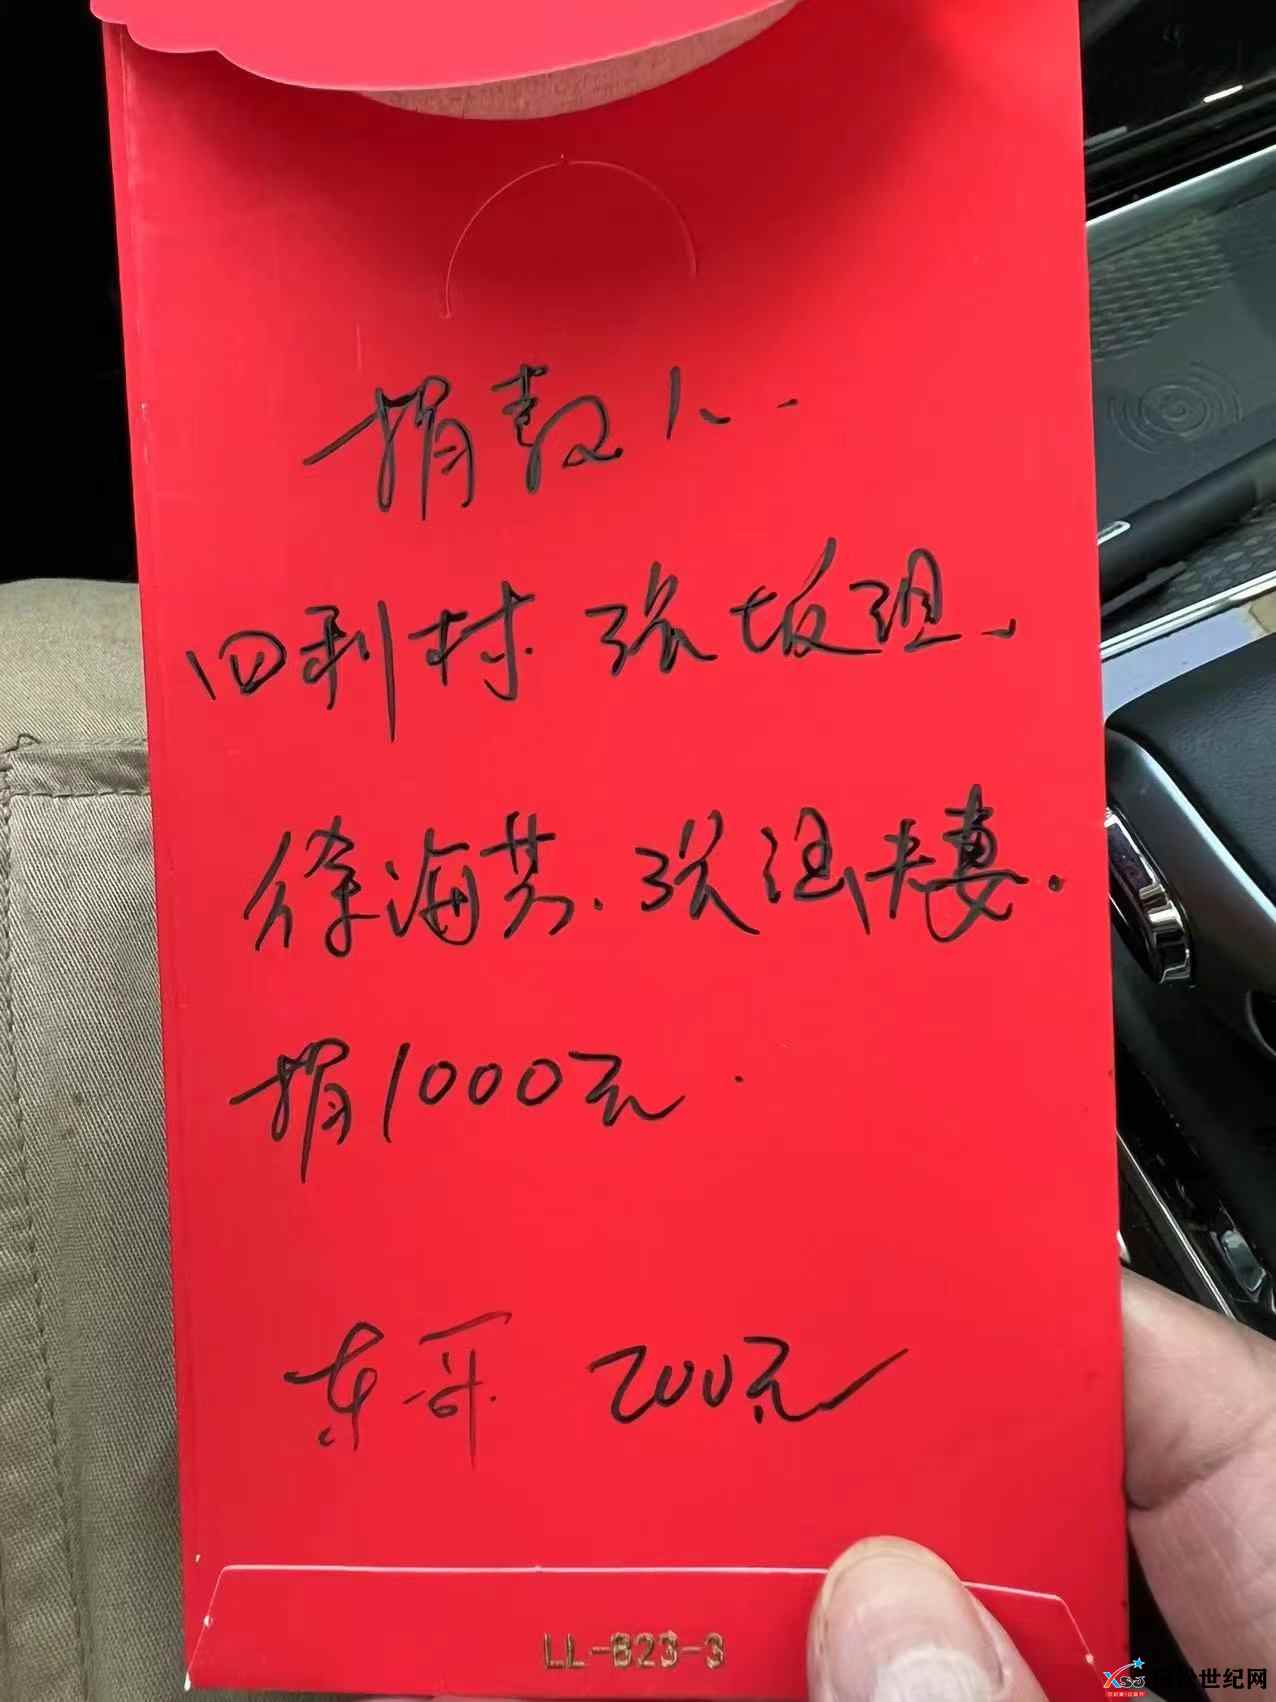 捐款人.
四利村 张坂组.
徐海芳.张强夫妻.
捐1000元.
东哥 200元
LL-B23-3
世纪网